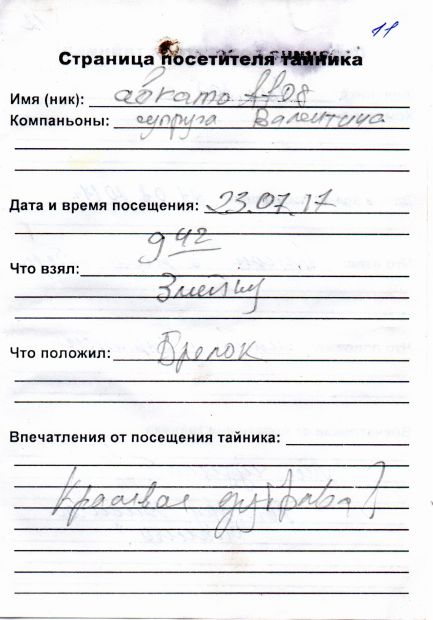 11
Страница посетителя тайника
Имя (ник): авкато 1708
Компаньоны: супруга Валентина
Дата и время посещения: 23.07.17
9 42
Что взял:
Змейку
Что положил: Брелок
Впечатления от посещения тайника:
Красивая дубрава